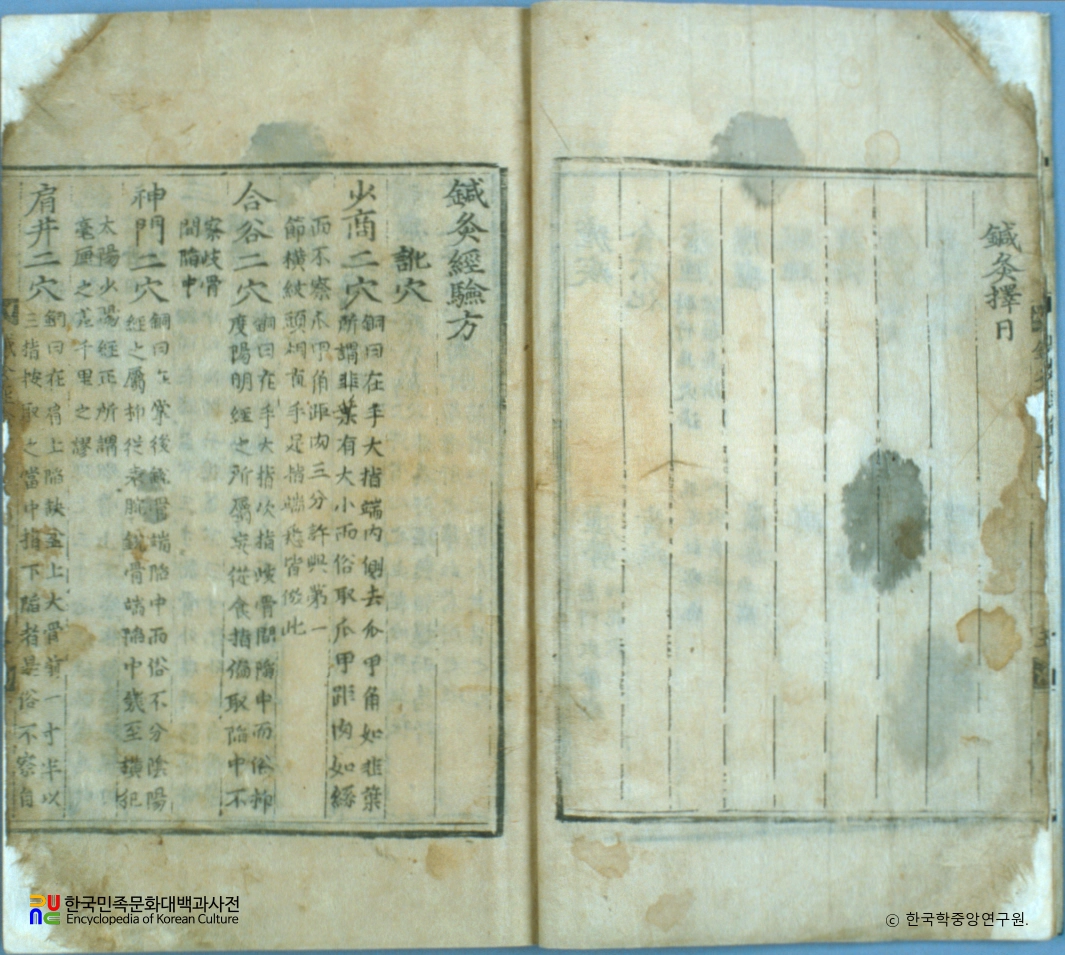 鍼灸擇日
鍼灸經驗方
訛穴
少商二穴
銅曰在手大指端內側去爪甲角如韭葉
所謂韭葉有大小而俗取爪甲距肉如綫
而不察爪甲角距肉三分許與第一
節橫紋頭相直手足指端穴皆倣此
合谷二穴
銅曰在手大指次指歧骨間陷中而俗抑
度陽明經之所屬從食指偏取陷中不
察歧骨
間陷中
神門二穴
銅曰在掌後銳骨端陷中而俗不分陰陽
經之屬抑從表腕銳骨端陷中幾至橫犯
太陽少陽經正所謂
毫厘之差千里之謬
肩井二穴
銅曰在肩上陷缺盆上大骨前一寸半以
三指按取之當中指下陷者是俗不察自
한국민족문화대백과사전
Encyclopedia of Korean Culture
ⓒ 한국학중앙연구원.